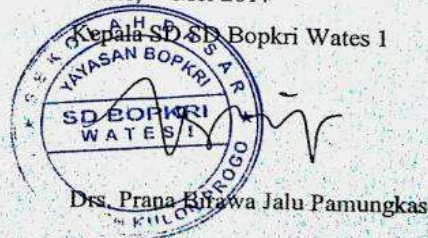 Kepala SD SD Bopkri Wates 1
SEKOLAH DASAR
YAYASAN BOPKRI
SD BOPKRI
WATES 1
KULON PROGO
Drs. Prana Birawa Jalu Pamungkas